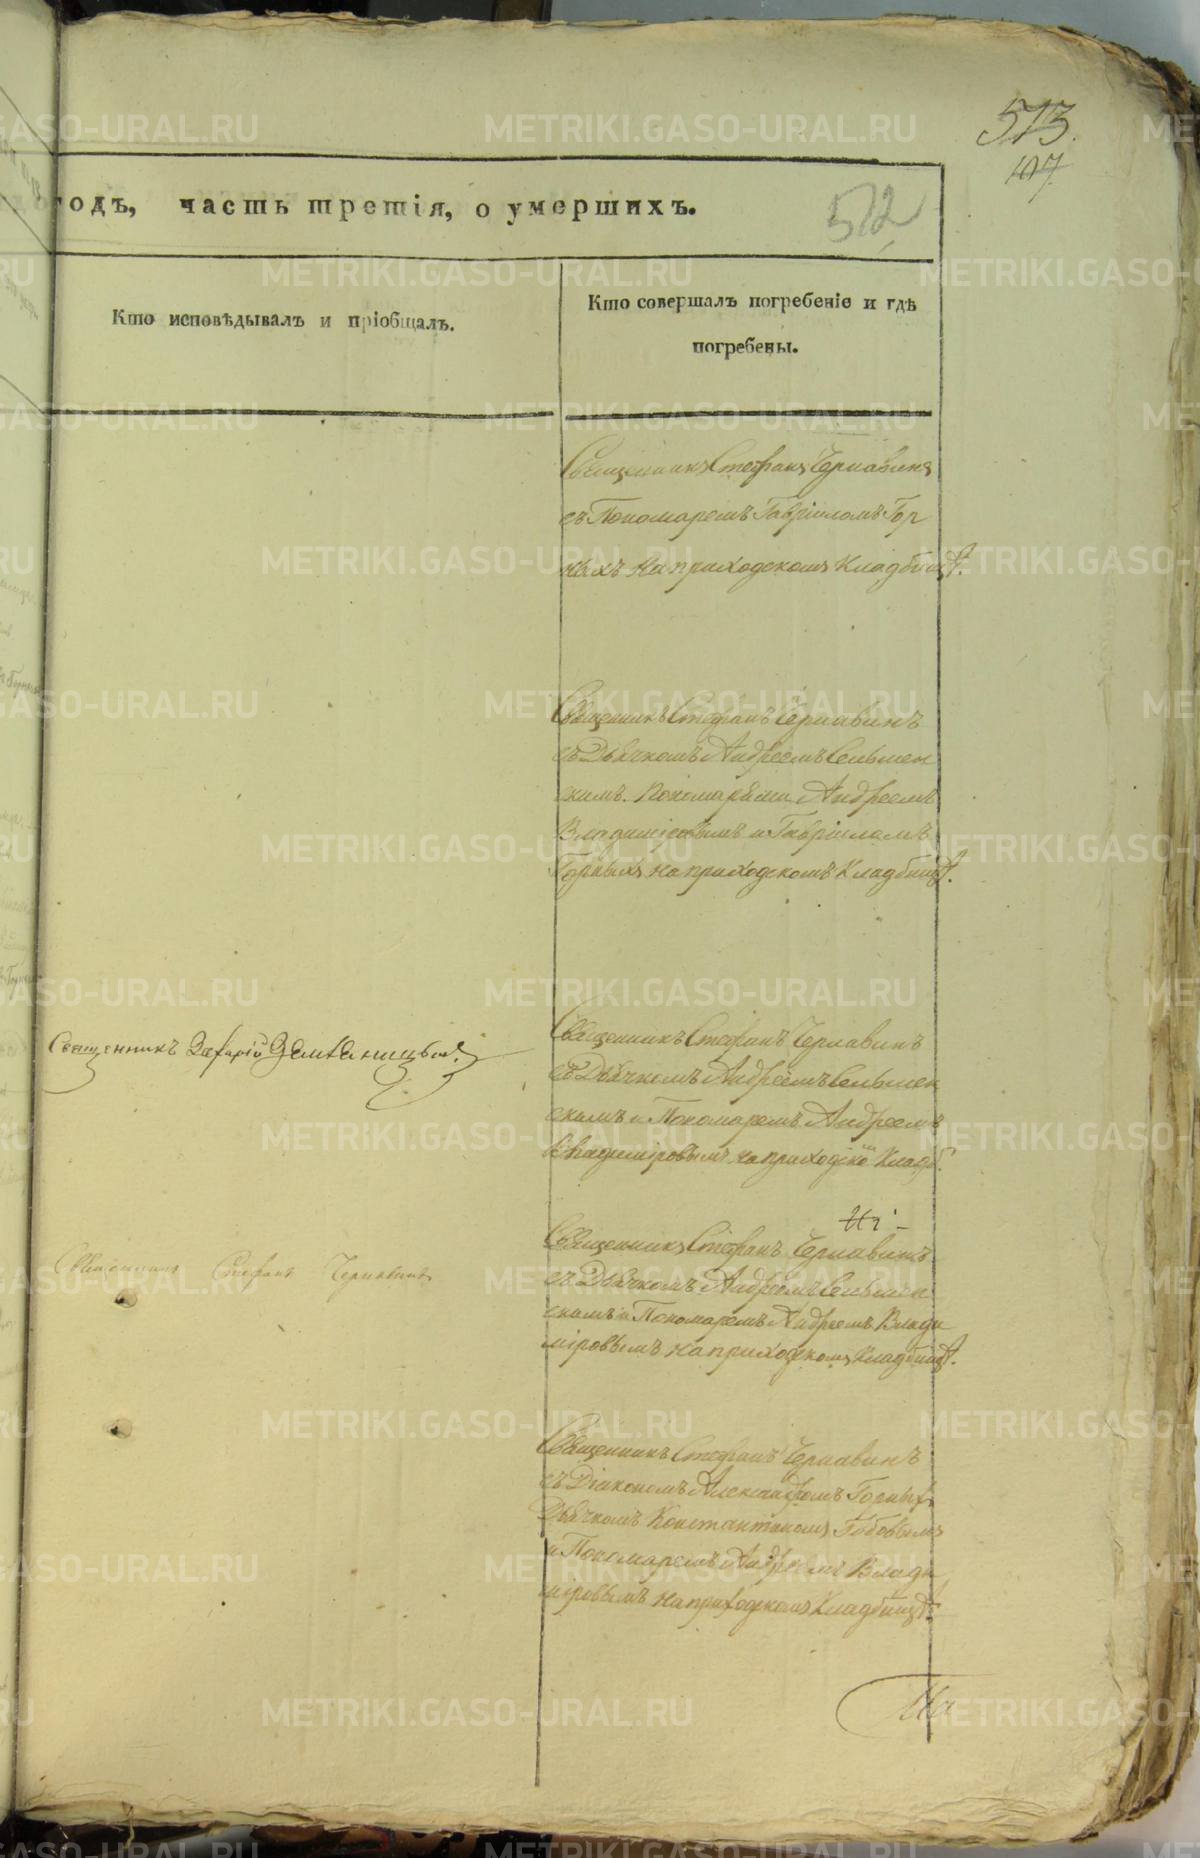 573.
107.
годъ, часть третія, о умершихъ.
572
Кто исповѣдывалъ и пріобщалъ.
Кто совершалъ погребеніе и гдѣ
погребены.
Священникъ Стефанъ Чернавинъ
съ Пономаремъ Гавріиломъ Гор
ныхъ на приходскомъ кладбищѣ.
Священникъ Стефанъ Чернавинъ
съ Дьячкомъ Андреемъ Сельмен
скимъ. Пономарями Андреемъ
Владиміровымъ и Гавріиломъ
Горныхъ на приходскомъ кладбищѣ.
Священникъ Захарій
Священникъ Стефанъ Чернавинъ
съ Дьячкомъ Андреемъ Сельмен
скимъ и Пономаремъ Андреемъ
Владиміровымъ на приходско<sup>мъ</sup> кладб.
Священникъ Стефанъ Чернавинъ
Священникъ Стефанъ Чернавинъ
съ Дьячкомъ Андреемъ Сельмен
скимъ и Пономаремъ Андреемъ Влади
міровымъ на приходскомъ кладбищѣ.
Священникъ Стефанъ Чернавинъ
съ Діакономъ Александромъ Горныхъ
Дьячкомъ Константиномъ
и Пономаремъ Андреемъ Влади
міровымъ на приходскомъ кладбищѣ.
METRIKI.GASO-URAL.RU